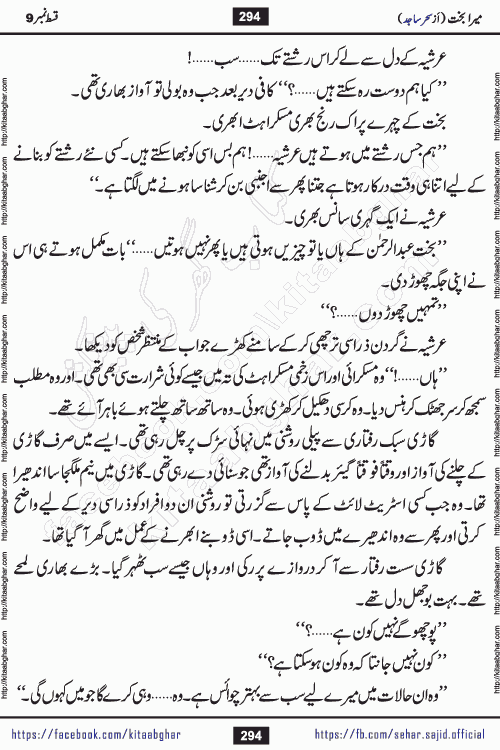 میرا بخت (از سحر ساجد) 294 قسط نمبر 9
عرشیہ کے دل سے لے کر اس رشتے تک......سب......!
”کیا ہم دوست رہ سکتے ہیں......؟“ کافی دیر بعد جب وہ بولی تو آواز بھاری تھی۔
بخت کے چہرے پر اک رنج بھری مسکراہٹ ابھری۔
”ہم جس رشتے میں ہوتے ہیں عرشیہ......! ہم بس اسی کو نبھا سکتے ہیں۔ کسی نئے رشتے کو بنانے
کے لیے اتنا ہی وقت درکار ہوتا ہے جتنا پھر سے اجنبی بن کر شناسا ہونے میں لگتا ہے۔“
عرشیہ نے ایک گہری سانس بھری۔
”بخت عبدالرحمٰن کے ہاں یا تو چیزیں ہوتی ہیں یا پھر نہیں ہوتیں......“ بات مکمل ہوتے ہی اس
نے اپنی جگہ چھوڑ دی۔
”تمہیں چھوڑ دوں......؟“
عرشیہ نے گردن ذرا سی ترچھی کر کے سامنے کھڑے جواب کے منتظر شخص کو دیکھا۔
”ہاں......!“ وہ مسکرائی اور اس زخمی مسکراہٹ کی تہ میں جیسے کوئی شرارت سی بھی تھی۔ اور وہ مطلب
سمجھ کر سر جھٹک کر ہنس دیا۔ وہ کرسی دھکیل کر کھڑی ہوئی۔ وہ ساتھ ساتھ چلتے ہوئے باہر آئے تھے۔
گاڑی سبک رفتاری سے پیلی روشنی میں نہائی سڑک پر چل رہی تھی۔ ایسے میں صرف گاڑی
کے چلنے کی آواز اور وقتاً فوقتاً گیئر بدلنے کی آواز تھی جو سنائی دے رہی تھی۔ گاڑی میں نیم ملگجا سا اندھیرا
تھا۔ وہ جب کسی اسٹریٹ لائٹ کے پاس سے گزرتی تو روشنی ان دو افراد کو ذرا سی دیر کے لیے واضح
کرتی اور پھر سے وہ اندھیرے میں ڈوب جاتے۔ اسی ڈوبنے ابھرنے کے عمل میں گھر آ گیا تھا۔
گاڑی سست رفتار سے آ کر دروازے پر رکی اور وہاں جیسے سب ٹھہر گیا۔ بڑے بھاری لمحے
تھے۔ بہت بوجھل دل تھے۔
”پوچھو گے نہیں کون ہے......؟“
”کون نہیں جانتا کہ وہ کون ہو سکتا ہے؟“
”وہ ان حالات میں میرے لیے سب سے بہتر چوائس ہے۔ وہ......وہی کرے گا جو میں کہوں گی۔“
https://facebook.com/kitaabghar 294 https://fb.com/sahar.sajid.official
http://kitaabghar.com